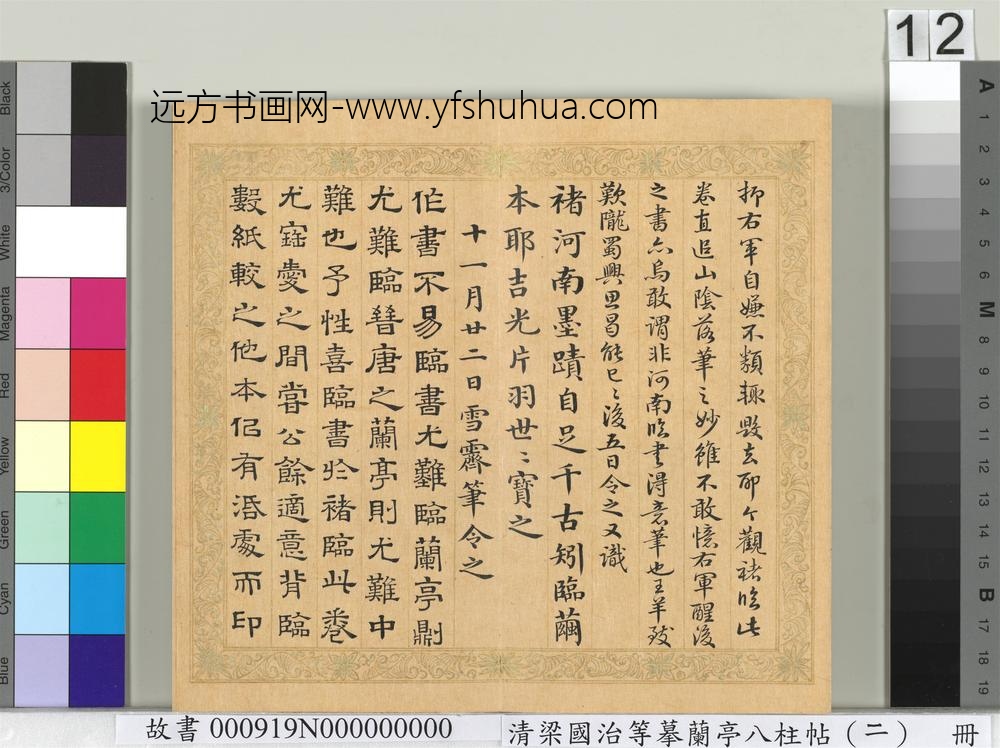 12
远方书画网-www.yfshuhua.com
抑右軍自嫌不類輒毀去耶今觀褚臨此
卷直追山陰落筆之妙雖不敢憶右軍醒後
之書亦烏敢謂非河南臨書得意筆也王羊歿
歎隴蜀興思曷能已已後五日令之又識
褚河南墨蹟自足千古矧臨繭
本耶吉光片羽世世寶之
十一月廿二日雪霽筆令之
作書不易臨書尤難臨蘭亭劇
尤難臨晉唐之蘭亭則尤難中
難也予性喜臨書於褚臨此卷
尤寤愛之間嘗公餘適意背臨
數紙較之他本侣有活處而印
Black
3/Color
White
Magenta
Red
Yellow
Green
Cyan
Blue
A
1
2
3
4
5
6
M
8
9
10
11
12
13
14
15
B
17
18
19
故書 000919N000000000
清梁國治等摹蘭亭八柱帖（二） 冊